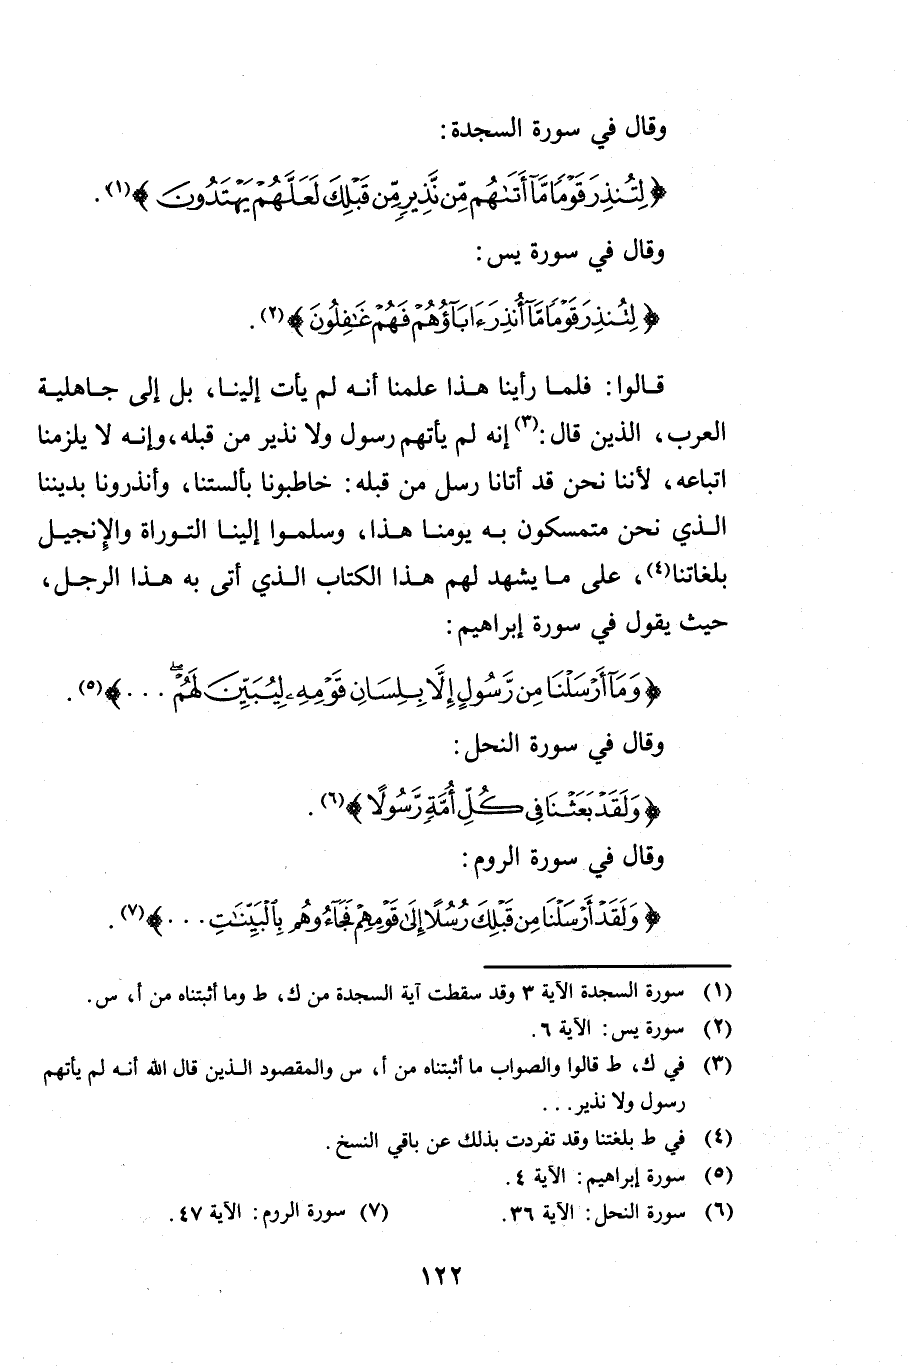 وقال في سورة السجدة:
﴿لِتُنذِرَ قَوْمًا مَّآ أَتَىٰهُم مِّن نَّذِيرٍ مِّن قَبْلِكَ لَعَلَّهُمْ يَهْتَدُونَ﴾(١).
وقال في سورة يس:
﴿لِتُنذِرَ قَوْمًا مَّآ أُنذِرَ ءَابَآؤُهُمْ فَهُمْ غَٰفِلُونَ﴾(٢).
قالوا: فلما رأينا هذا علمنا أنه لم يأت إلينا، بل إلى جاهلية
العرب، الذين قال:(٣) إنه لم يأتهم رسول ولا نذير من قبله، وإنه لا يلزمنا
اتباعه، لأننا نحن قد أتانا رسل من قبله: خاطبونا بألستنا، وأنذرونا بديننا
الذي نحن متمسكون به يومنا هذا، وسلموا إلينا التوراة والإنجيل
بلغاتنا(٤)، على ما يشهد لهم هذا الكتاب الذي أتى به هذا الرجل،
حيث يقول في سورة إبراهيم:
﴿وَمَآ أَرْسَلْنَا مِن رَّسُولٍ إِلَّا بِلِسَانِ قَوْمِهِۦ لِيُبَيِّنَ لَهُمْ ۖ ...﴾(٥).
وقال في سورة النحل:
﴿وَلَقَدْ بَعَثْنَا فِى كُلِّ أُمَّةٍ رَّسُولًا﴾(٦).
وقال في سورة الروم:
﴿وَلَقَدْ أَرْسَلْنَا مِن قَبْلِكَ رُسُلًا إِلَىٰ قَوْمِهِمْ فَجَآءُوهُم بِٱلْبَيِّنَٰتِ ...﴾(٧).
(١) سورة السجدة الآية ٣ وقد سقطت آية السجدة من ك، ط وما أثبتناه من أ، س.
(٢) سورة يس: الآية ٦.
(٣) في ك، ط قالوا والصواب ما أثبتناه من أ، س والمقصود الذين قال الله أنه لم يأتهم
رسول ولا نذير...
(٤) في ط بلغتنا وقد تفردت بذلك عن باقي النسخ.
(٥) سورة إبراهيم: الآية ٤.
(٦) سورة النحل: الآية ٣٦. (٧) سورة الروم: الآية ٤٧.
١٢٢